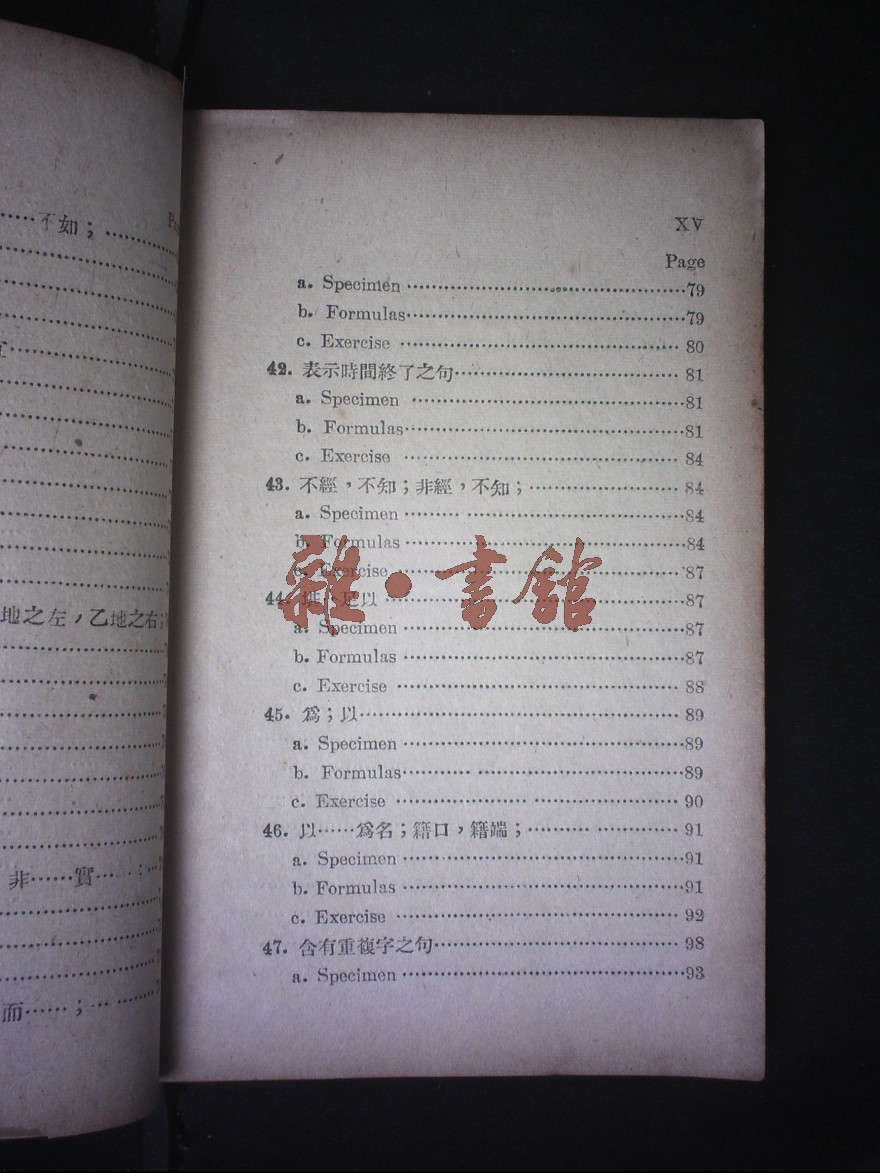 不如；
地之左，乙地之右；
非……實……；
而……；…
XV
Page
a. Specimen ……79
b. Formulas……79
c. Exercise …… 80
42. 表示時間終了之句…… 81
a. Specimen ……81
b. Formulas……81
c. Exercise …… 84
43. 不經，不知；非經，不知；…… 84
a. Specimen ……84
b. Formulas ……84
c. Exercise ……87
44. 足以 ……87
a. Specimen ……87
b. Formulas ……87
c. Exercise …… 88
45. 爲；以…… 89
a. Specimen ……89
b. Formulas……89
c. Exercise …… 90
46. 以……爲名；籍口，籍端；…… 91
a. Specimen ……91
b. Formulas ……91
c. Exercise …… 92
47. 含有重複字之句…… 98
a. Specimen ……93
雜·書館